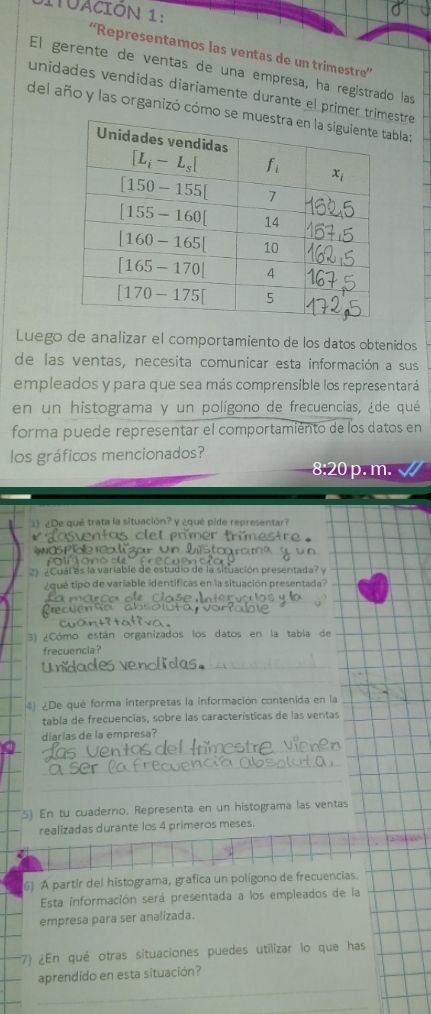 SITUACIÓN 1:
“Representamos las ventas de un trimestre”
El gerente de ventas de una empresa, ha registrado las
unidades vendidas diariamente durante el primer trimestre
del año y las organizó cómo se muestra en la siguiente tabla:
Unidades vendidas [Li – Ls[ fi xi
[150 – 155[ 7 152,5
[155 – 160[ 14 157,5
[160 – 165[ 10 162,5
[165 – 170[ 4 167,5
[170 – 175[ 5 172,5
Luego de analizar el comportamiento de los datos obtenidos
de las ventas, necesita comunicar esta información a sus
empleados y para que sea más comprensible los representará
en un histograma y un polígono de frecuencias, ¿de qué
forma puede representar el comportamiento de los datos en
los gráficos mencionados?
8:20 p. m.
1) ¿De qué trata la situación? y ¿qué pide representar?
Las ventas del primer trimestre.
nos pide realizar un histograma y un
polígono de frecuencia
2) ¿Cuál es la variable de estudio de la situación presentada? y
¿qué tipo de variable identificas en la situación presentada?
La marca de clase, Intervalos y la
frecuencia absoluta, variable
cuantitativa.
3) ¿Cómo están organizados los datos en la tabla de
frecuencia?
Unidades vendidas.
4) ¿De qué forma interpretas la información contenida en la
tabla de frecuencias, sobre las características de las ventas
diarias de la empresa?
Las ventas del trimestre vienen
a ser la frecuencia absoluta.
5) En tu cuaderno. Representa en un histograma las ventas
realizadas durante los 4 primeros meses.
6) A partir del histograma, grafica un polígono de frecuencias.
Esta información será presentada a los empleados de la
empresa para ser analizada.
7) ¿En qué otras situaciones puedes utilizar lo que has
aprendido en esta situación?